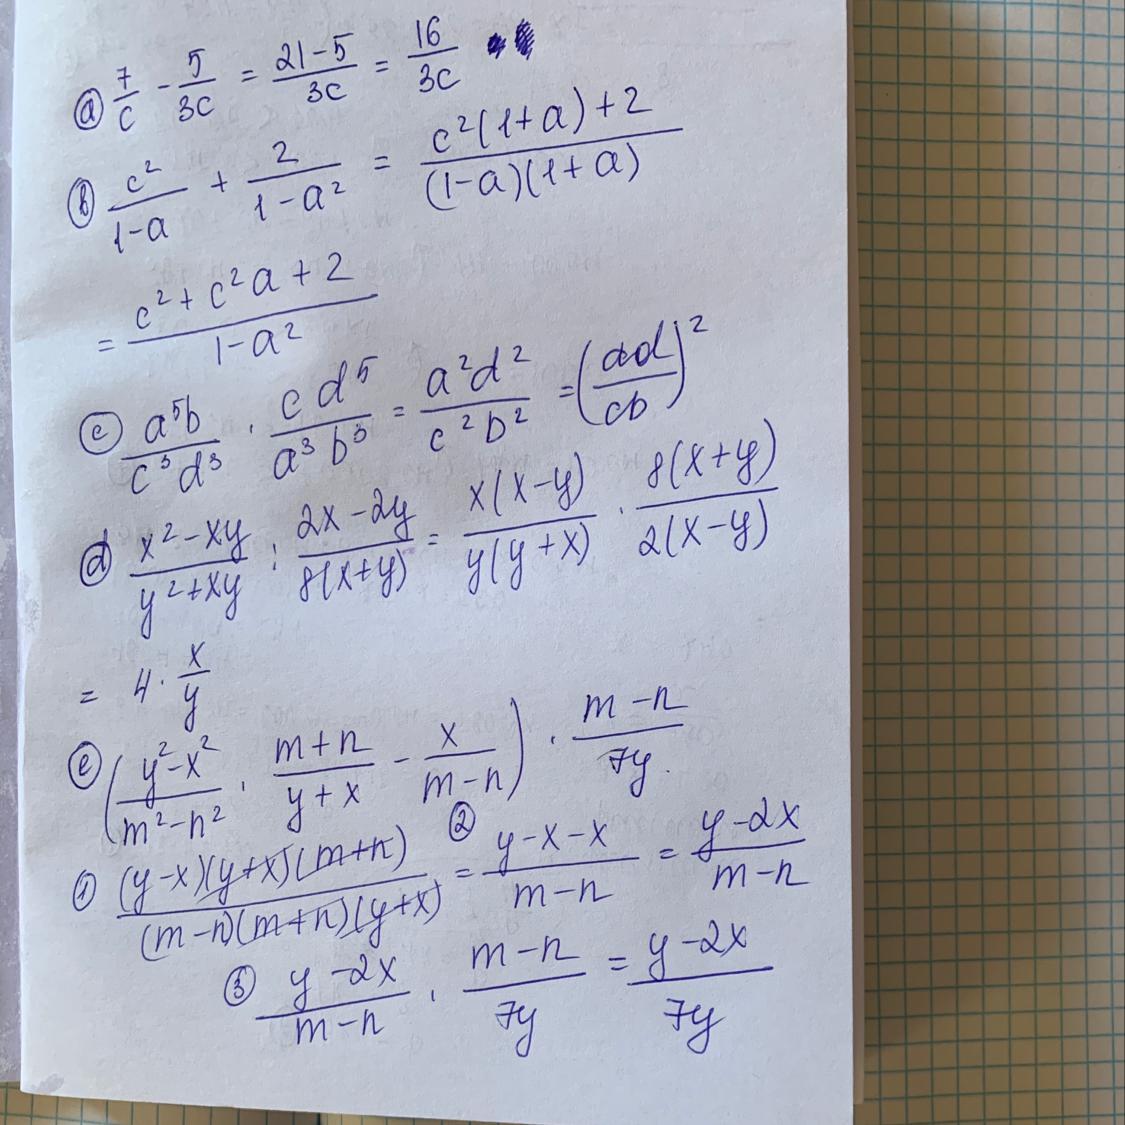 (a) 7/c - 5/3c = (21-5)/3c = 16/3c
(b) c²/(1-a) + 2/(1-a²) = (c²(1+a)+2)/((1-a)(1+a))
= (c²+c²a+2)/(1-a²)
(c) a⁵b/c³d³ · cd⁵/a³b³ = a²d²/c²b² = (ad/cb)²
(d) (x²-xy)/(y²+xy) : (2x-2y)/(8(x+y)) = x(x-y)/(y(y+x)) · 8(x+y)/(2(x-y))
= 4 · x/y
(e) ((y²-x²)/(m²-n²) · (m+n)/(y+x) - x/(m-n)) · (m-n)/7y.
(1) (y-x)(y+x)(m+n)/((m-n)(m+n)(y+x)) = (2) (y-x-x)/(m-n) = (y-2x)/(m-n)
(3) (y-2x)/(m-n) · (m-n)/7y = (y-2x)/7y